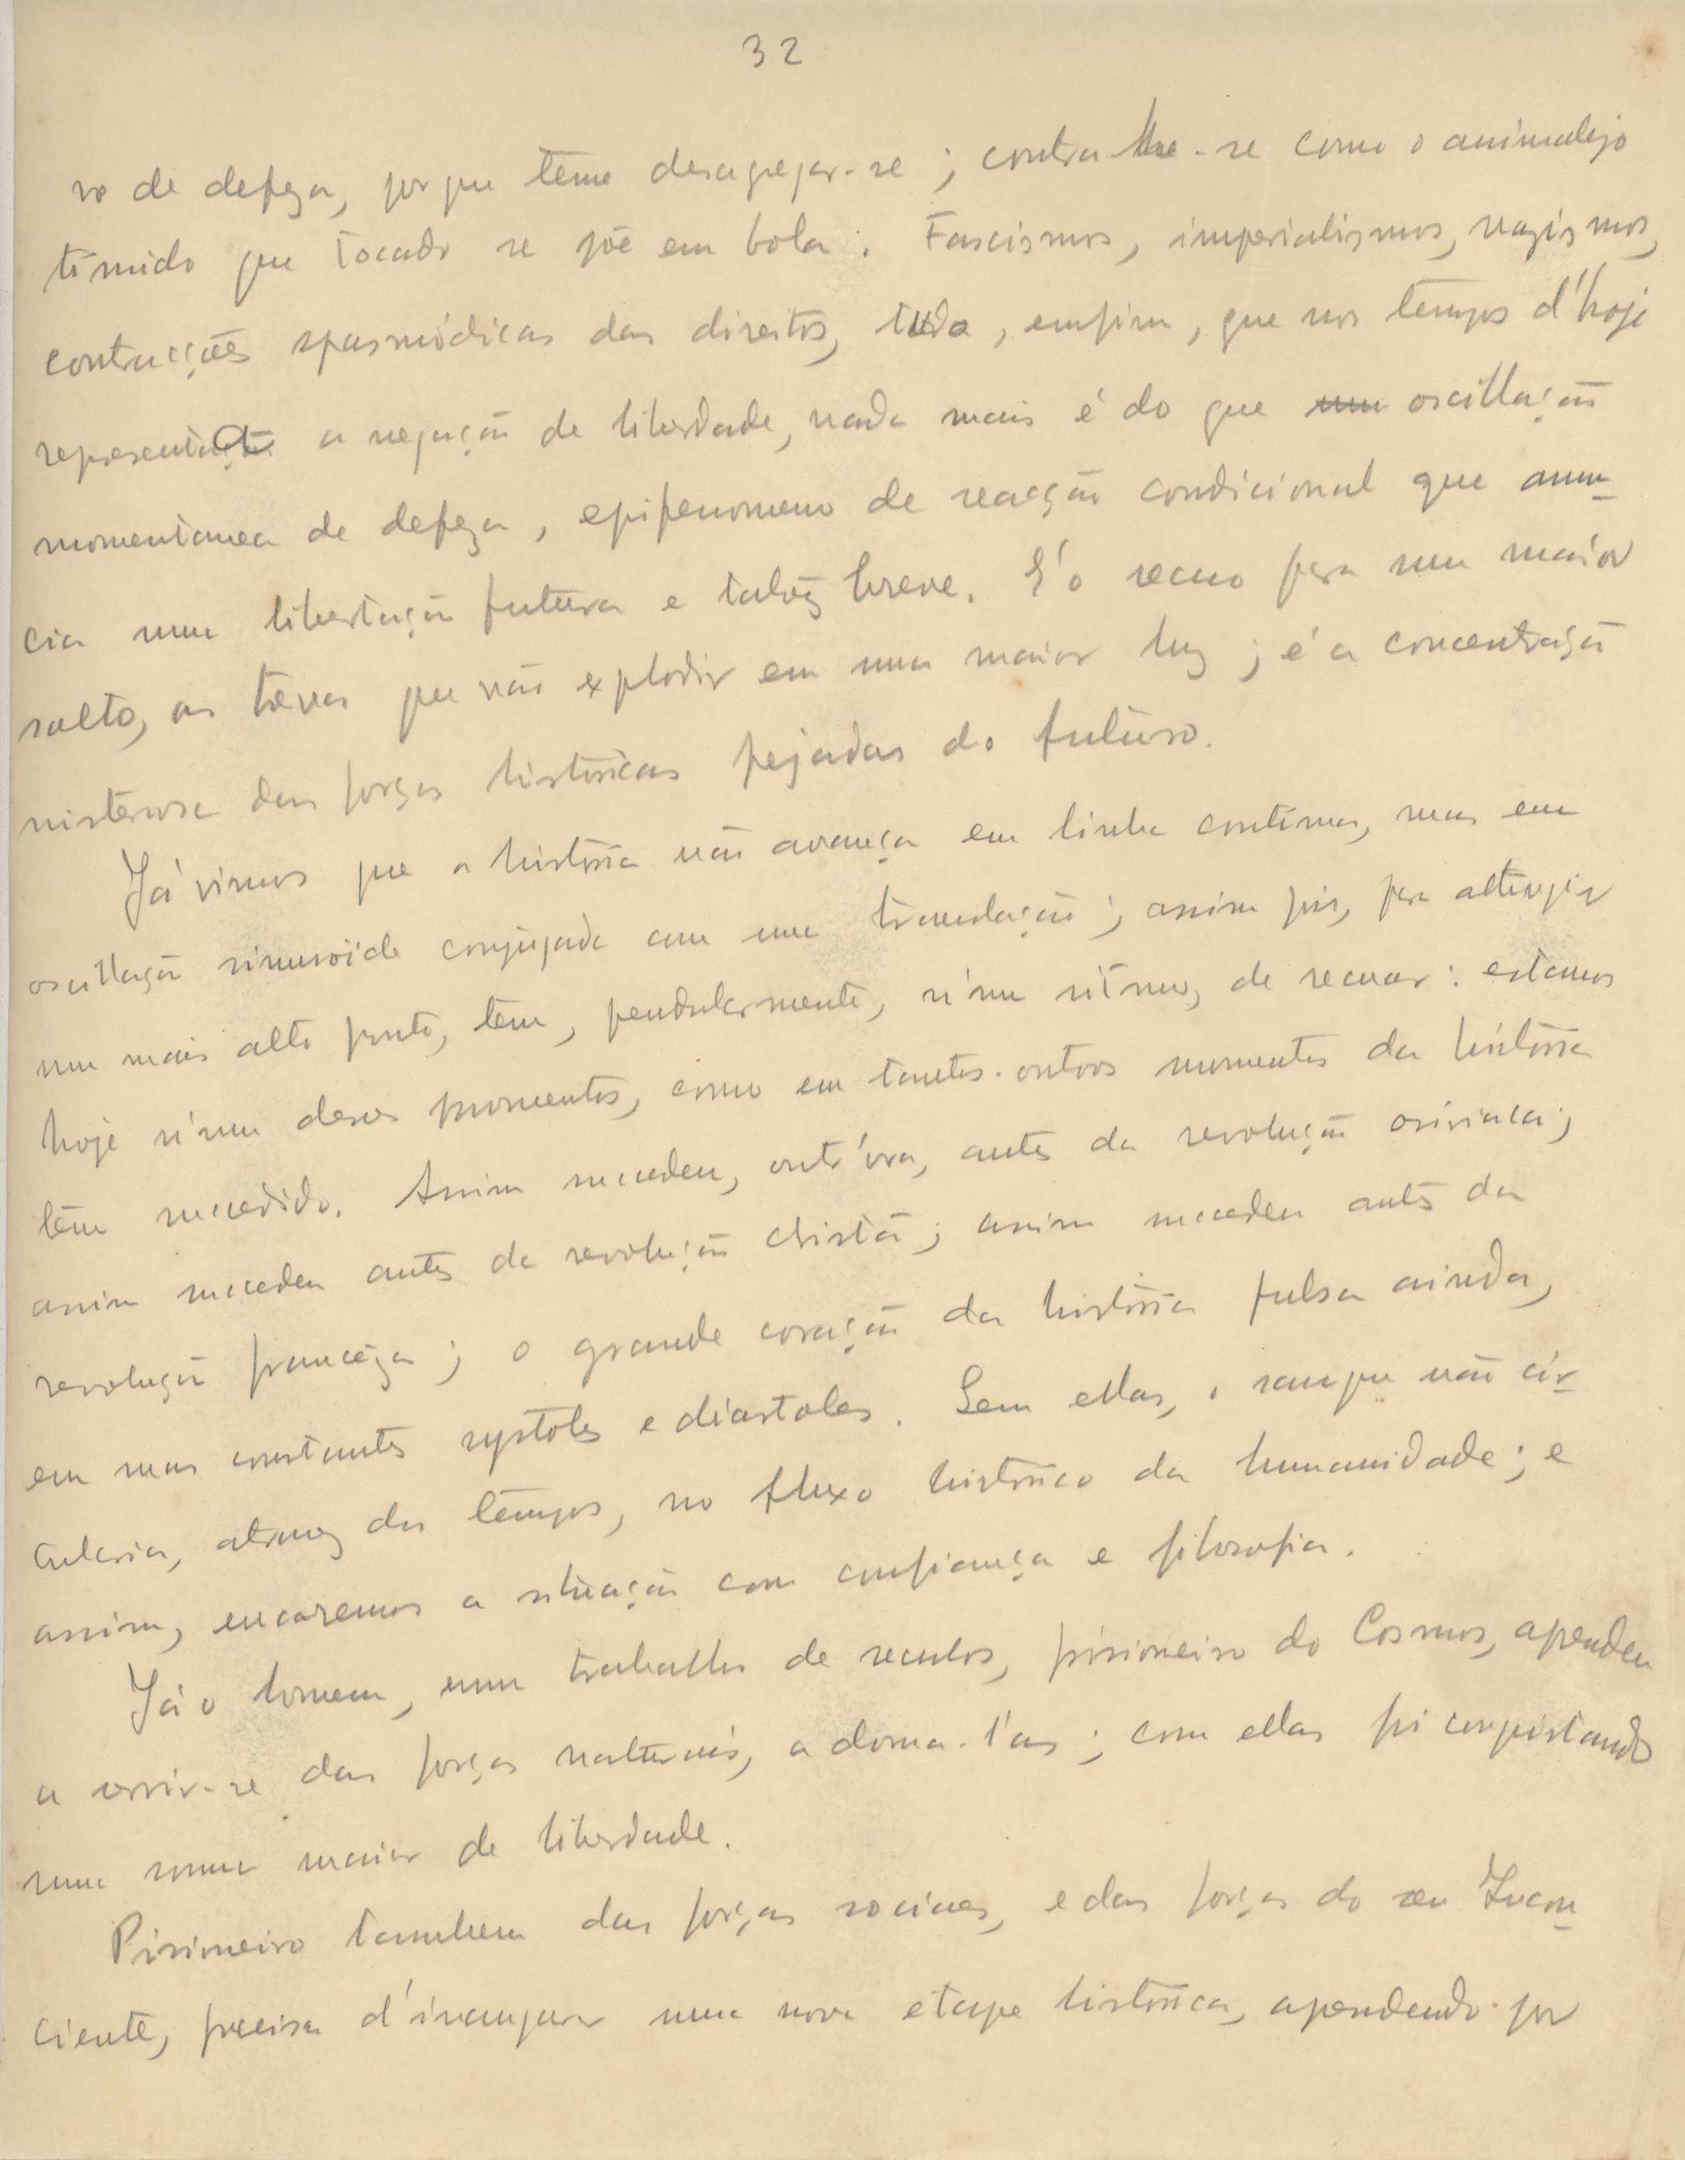 32
vo de defeza, porque teme desagregar-se; contrahe-se como o animalejo
timido que tocado se põe em bola. Fascismos, imperialismos, nazismos,
contracções spasmódicas das direitas, tudo, emfim, que nos tempos d'hoje
representa a negação de liberdade, nada mais é do que oscillação
momentanea de defeza, epifenomeno de reacção condicional que anun-
cia uma libertação futura e talvêz breve. E' o recuo para um maior
salto, as trevas que vão explodir em uma maior luz; é a concentração
misteriosa das forças históricas pejadas do futuro.
Já vimos que a história não avança em linha continua, mas em
oscillação sinusoide conjugada com uma translação; assim pois, para attingir
um mais alto ponto, tem, pendularmente, n'um ritmo, de recuar: estamos
hoje n'um desses momentos, como em tantos outros momentos da história
tem succedido. Assim succedeu, outr'ora, antes da revolução osiriaca;
assim succedeu antes da revolução christã; assim succedeu antes da
revolução francêza; o grande coração da história pulsa ainda,
em suas constantes systoles e diastoles. Sem ellas, o sangue não cir-
cularia, atravez dos tempos, no fluxo histórico da humanidade; e
assim, encaremos a situação com confiança e filosofia.
Já o homem, num trabalho de seculos, prisioneiro do Cosmos, aprendeu
a servir-se das forças naturais, a doma-l'as; com ellas foi conquistando
uma soma maior de liberdade.
Prisioneiro tambem das forças sociaes, e das forças do seu Incons-
ciente, precisa d'inaugurar uma nova etape histórica, aprendendo por